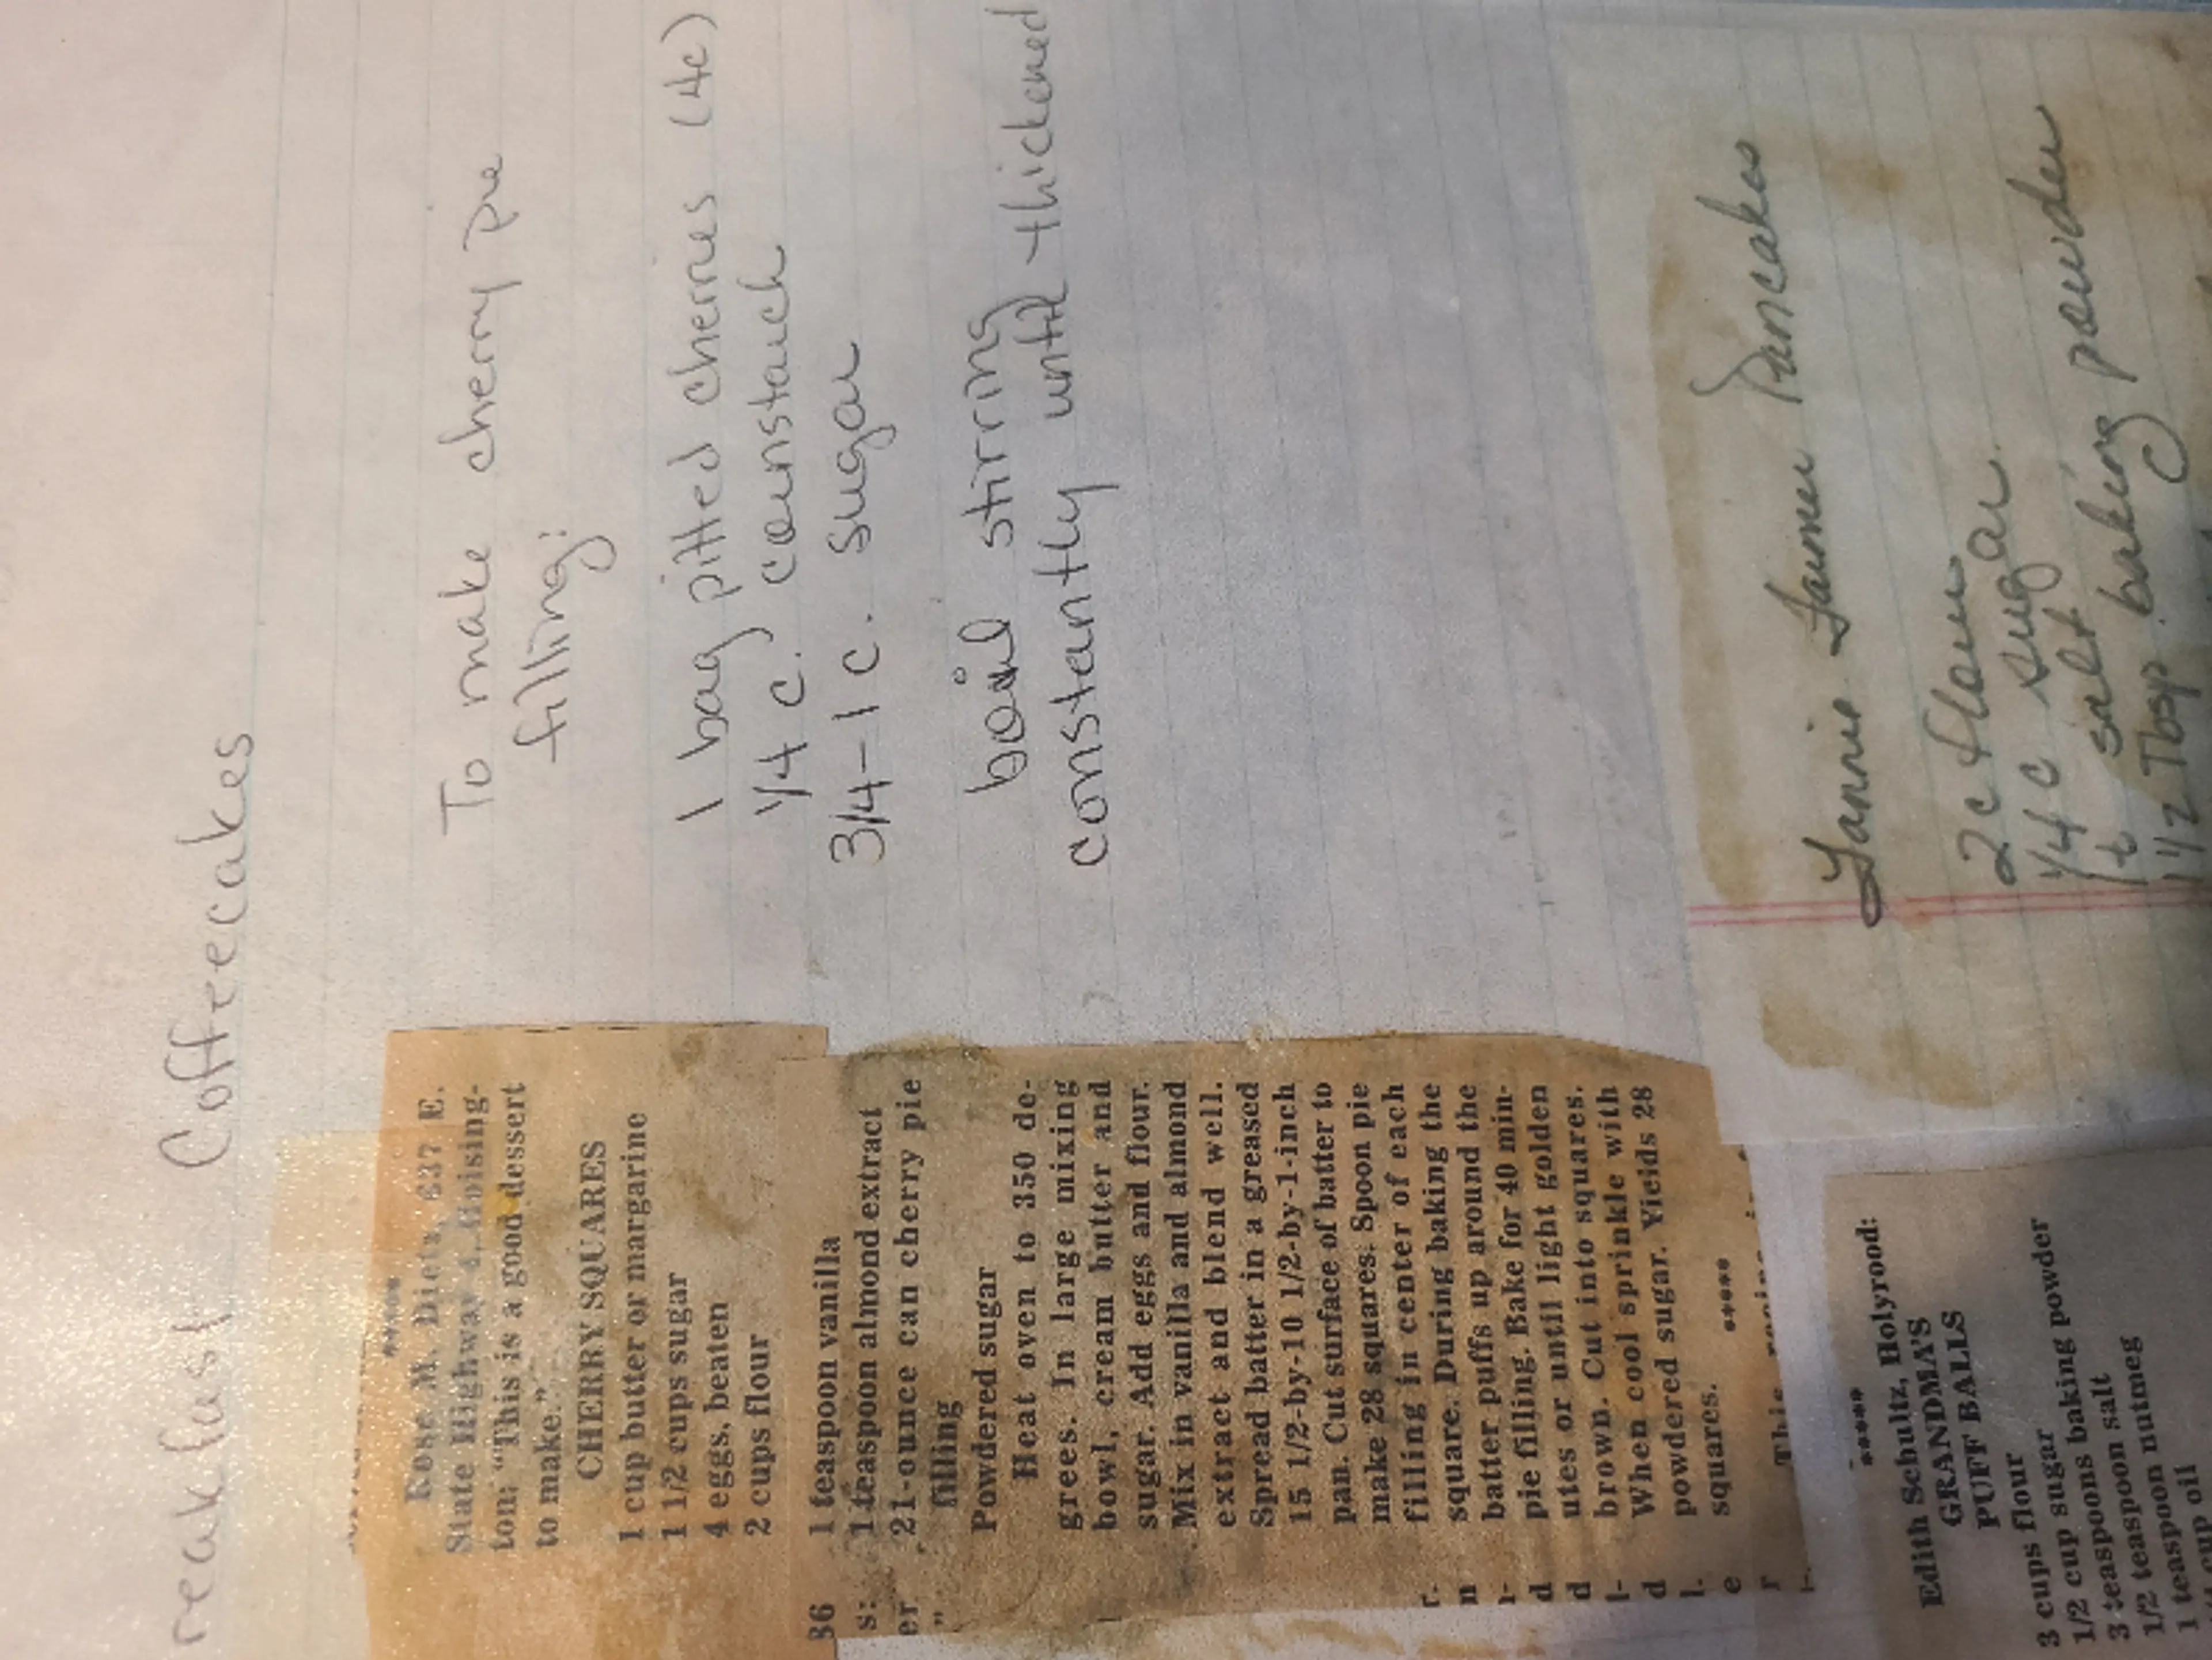 reakfast Coffeecakes
*****
Rose M. Dietz, 637 E.
State Highway 4, Hoising-
ton: "This is a good dessert
to make."
CHERRY SQUARES
1 cup butter or margarine
1 1/2 cups sugar
4 eggs, beaten
2 cups flour
1 teaspoon vanilla
1 teaspoon almond extract
21-ounce can cherry pie
filling
Powdered sugar
Heat oven to 350 de-
grees. In large mixing
bowl, cream butter and
sugar. Add eggs and flour.
Mix in vanilla and almond
extract and blend well.
Spread batter in a greased
15 1/2-by-10 1/2-by-1-inch
pan. Cut surface of batter to
make 28 squares. Spoon pie
filling in center of each
square. During baking the
batter puffs up around the
pie filling. Bake for 40 min-
utes or until light golden
brown. Cut into squares.
When cool sprinkle with
powdered sugar. Yields 28
squares.
*****
This recipe
36
s:
er
"
r.
n
r-
d
d
l-
d
l.
e
r
i-
To make cherry pie
filling:
1 bag pitted cherries (4c)
1/4 c. cornstarch
3/4-1 c. sugar
boil stirring
constantly until thickened
*****
Edith Schultz, Holyrood:
GRANDMA'S
PUFF BALLS
3 cups flour
1/2 cup sugar
3 teaspoons baking powder
1 teaspoon salt
1/2 teaspoon nutmeg
cup oil
Fannie Farmer Pancakes
2 c flour
1/4 c sugar
1 t salt
1 1/2 Tbsp. baking powder